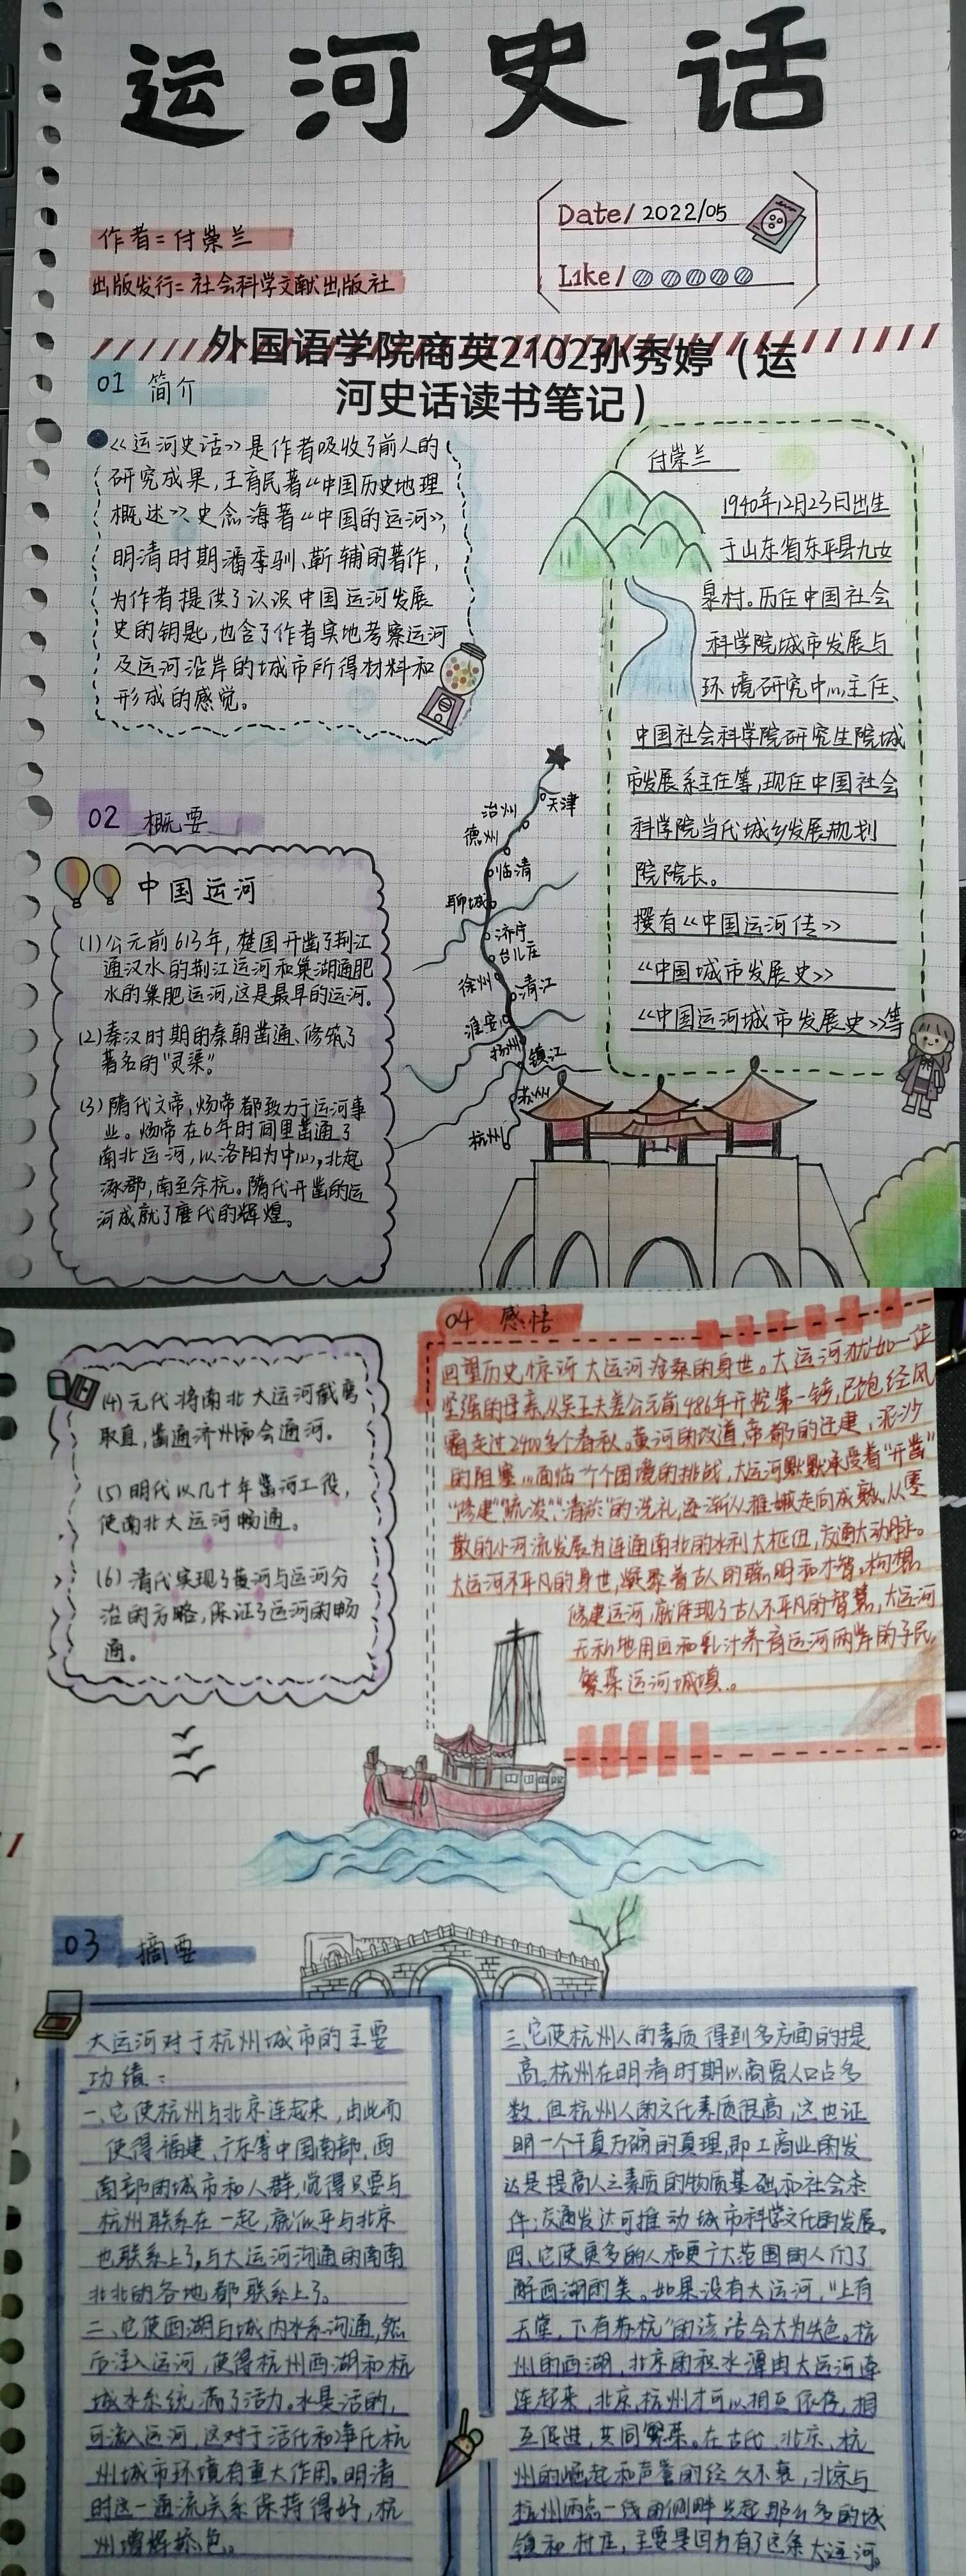 运河史话
作者=付崇兰
出版发行=社会科学文献出版社
Date/ 2022/05
Like/
外国语学院商英2102孙秀婷（运
河史话读书笔记）
01 简介
《运河史话》是作者吸收了前人的
研究成果,王育民著《中国历史地理
概述》、史念海著《中国的运河》,
明清时期潘季驯、靳辅的著作,
为作者提供了认识中国运河发展
史的钥匙,也含了作者实地考察运河
及运河沿岸的城市所得材料和
形成的感觉。
付崇兰
1940年12月23日出生
于山东省东平县九女
泉村。历任中国社会
科学院城市发展与
环境研究中心主任、
中国社会科学院研究生院城
市发展系主任等,现任中国社会
科学院当代城乡发展规划
院院长。
撰有《中国运河传》
《中国城市发展史》
《中国运河城市发展史》等
02 概要
中国运河
(1)公元前613年,楚国开凿了荆江
通汉水的荆江运河和巢湖通肥
水的巢肥运河,这是最早的运河。
(2)秦汉时期的秦朝凿通、修筑了
著名的“灵渠”。
(3)隋代文帝,炀帝都致力于运河事
业。炀帝在6年时间里凿通了
南北运河,以洛阳为中心,北起
涿郡,南至余杭。隋代开凿的运
河成就了唐代的辉煌。
天津
治州
德州
临清
聊城
济宁
台儿庄
徐州
清江
淮安
扬州
镇江
苏州
杭州
(4)元代将南北大运河截弯
取直,凿通济州和会通河。
(5)明代以几十年凿河工役,
使南北大运河畅通。
(6)清代实现了黄河与运河分
治的方略,保证了运河的畅
通。
04 感悟
回望历史,惊讶大运河沧桑的身世。大运河犹如一位
坚强的母亲,从吴王夫差公元前486年开挖第一锹,已饱经风
霜走过2400多个春秋。黄河的改道,帝都的迁建,泥沙
的阻塞…面临一个个困境的挑战,大运河默默承受着“开凿”
“修建”“疏浚”“清淤”的洗礼,逐渐从稚嫩走向成熟,从零
散的小河流发展为连通南北的水利大枢纽,交通大动脉。
大运河不平凡的身世,凝聚着古人的聪明和才智。构想、
修建运河,就体现了古人不平凡的智慧,大运河
无私地用血和乳汁养育运河两岸的子民,
繁荣运河城镇。
03 摘要
大运河对于杭州城市的主要
功绩:
一、它使杭州与北京连起来,由此而
使得福建、广东等中国南部、西
南部的城市和人群,觉得只要与
杭州联系在一起,就似乎与北京
也联系上了,与大运河沟通的南南
北北的各地都联系上了。
二、它使西湖与城内水系沟通,然
后注入运河,使得杭州西湖和杭
城水系统满了活力。水是活的,
可流入运河,这对于活化和净化杭
州城市环境有重大作用。明清
时这一通流关系保持得好,杭
州增辉添色。
三、它使杭州人的素质得到多方面的提
高。杭州在明清时期以商贾人口占多
数,但杭州人的文化素质很高,这也证
明一个千真万确的真理,即工商业的发
达是提高人之素质的物质基础和社会条
件;交通发达可推动城市科学文化的发展。
四、它使更多的人和更广大范围的人们了
解西湖的美。如果没有大运河,“上有
天堂,下有苏杭”的该话会大为失色。杭
州的西湖,北京的积水潭由大运河连
连起来,北京杭州才可以相互依存,相
互促进,共同繁荣。在古代,北京、杭
州的崛起和声誉的经久不衰,北京与
杭州两点一线的侧畔兴起那么多的城
镇和村庄,主要是因为有了这条大运河。